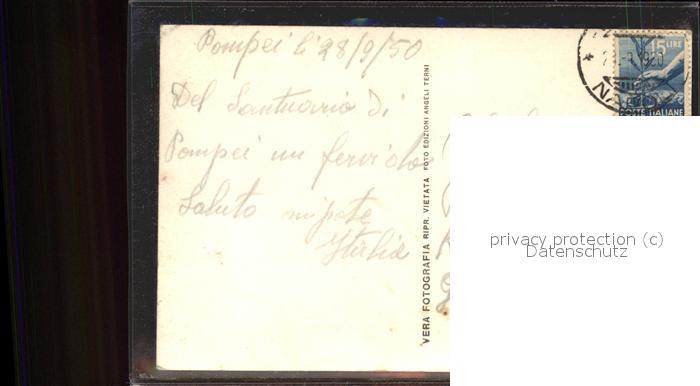 Pompei li 28/9/50
Del Santuario di
Pompei un fervido
Saluto nipote
Italia
VERA FOTOGRAFIA RIPR. VIETATA FOTO EDIZIONI ANGELI TERNI
15 LIRE
POSTE ITALIANE
privacy protection (c)
Datenschutz